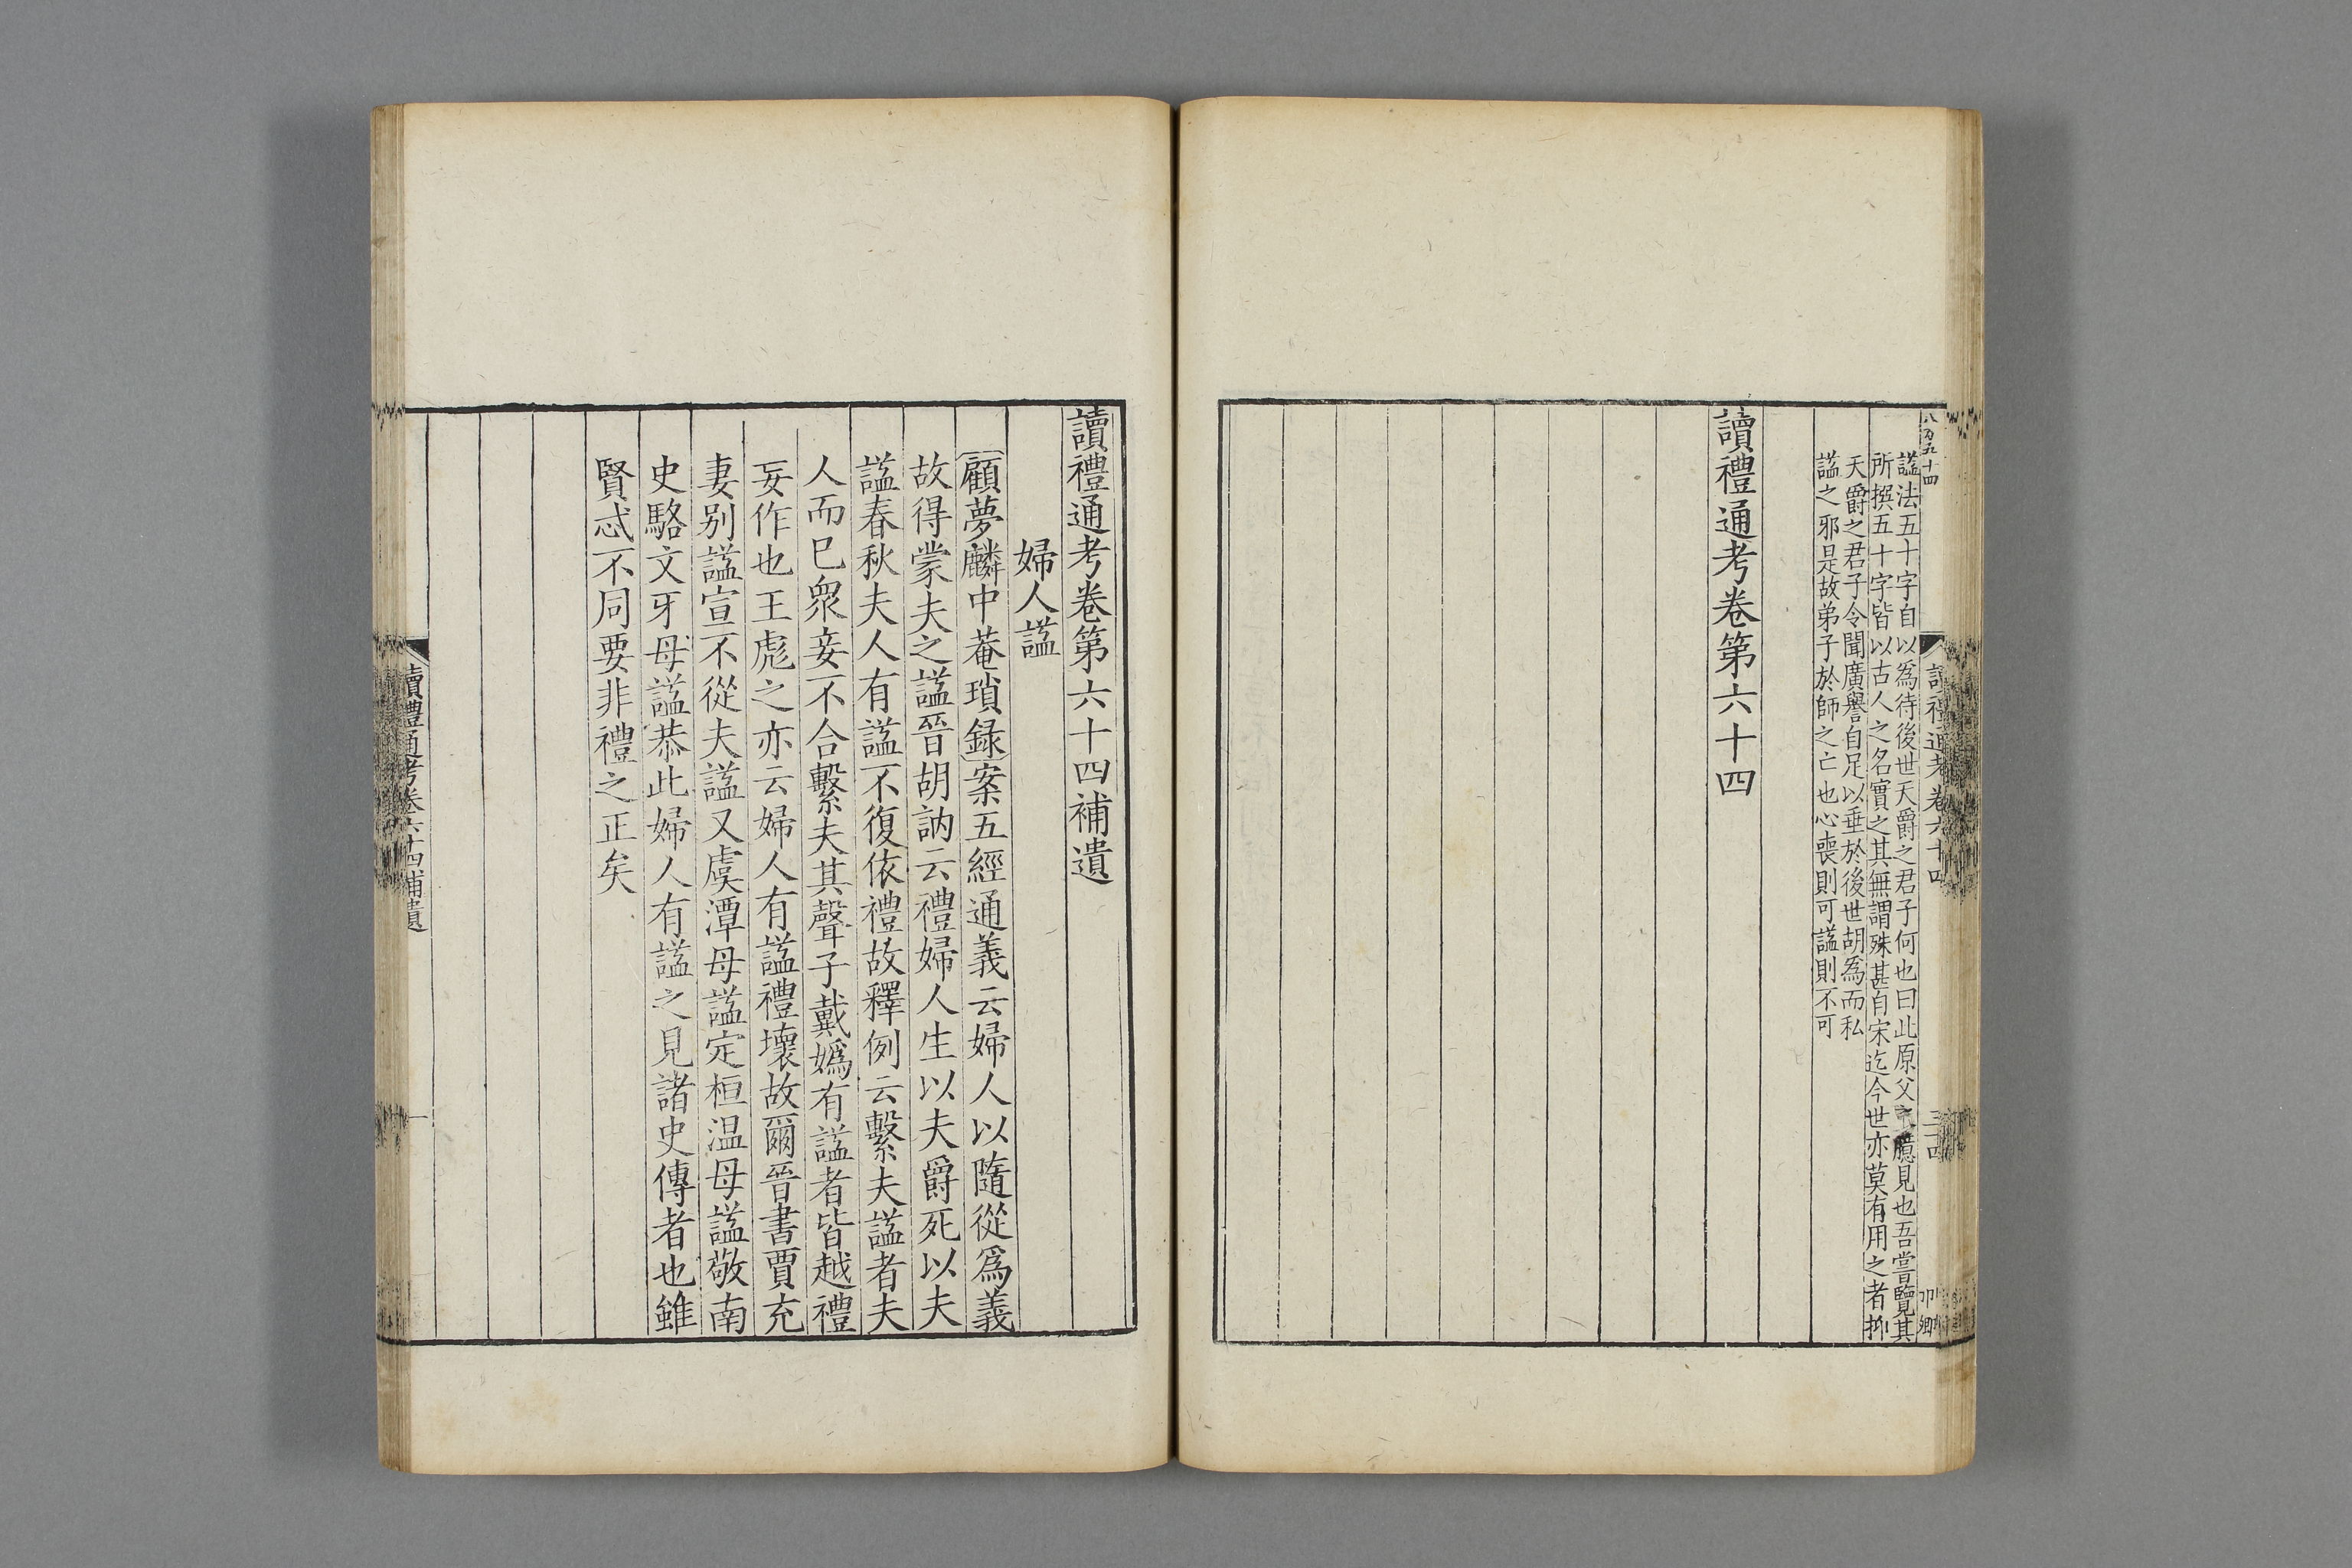 讀禮通考卷六十四
謚法五十字自以爲待後世天爵之君子何也曰此原父之臆見也吾嘗覽其
所撰五十字皆以古人之名實之其無謂殊甚自宋迄今世亦莫有用之者抑
天爵之君子令聞廣譽自足以垂於後世胡爲而私
謚之邪是故弟子於師之亡也心喪則可謚則不可
讀禮通考卷第六十四
讀禮通考卷第六十四補遺
婦人謚
顧夢麟中菴瑣録案五經通義云婦人以隨從爲義
故得蒙夫之謚晉胡訥云禮婦人生以夫爵死以夫
謚春秋夫人有謚不復依禮故釋例云繫夫謚者夫
人而已衆妾不合繫夫其聲子戴嬀有謚者皆越禮
妄作也王彪之亦云婦人有謚禮壞故爾晉書賈充
妻别謚宣不從夫謚又虞潭母謚定桓温母謚敬南
史駱文牙母謚恭此婦人有謚之見諸史傳者也雖
賢忒不同要非禮之正矣
讀禮通考卷六十四補遺
一